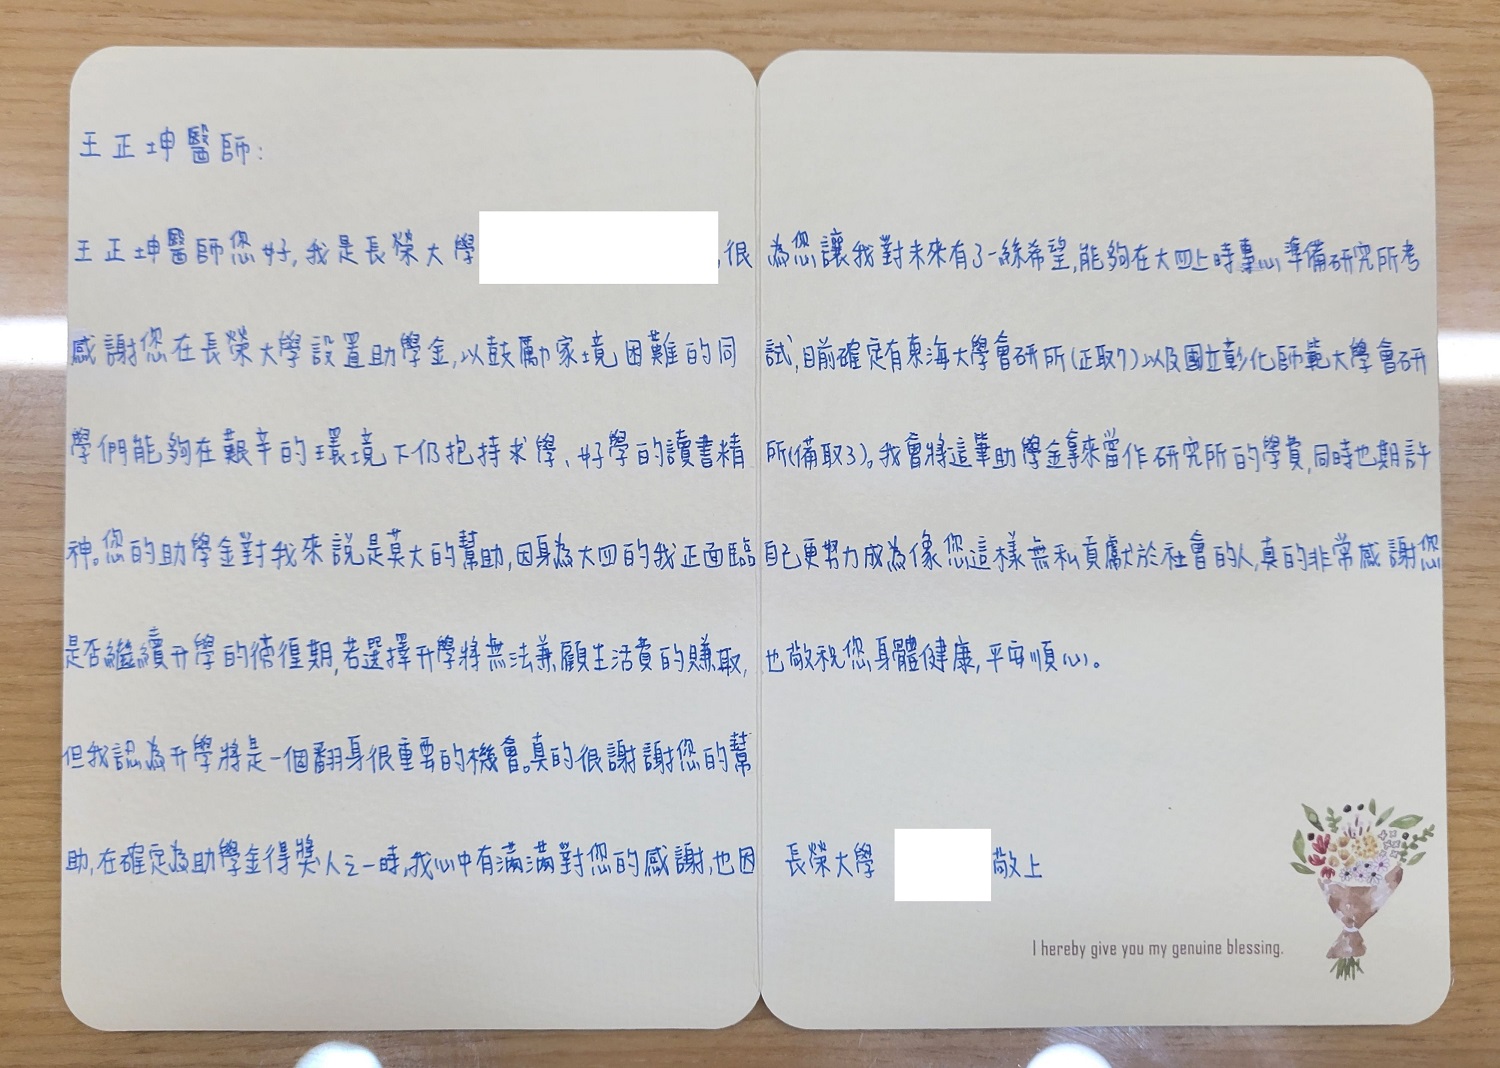 王正坤醫師:
王正坤醫師您好,我是長榮大學 ,很
感謝您在長榮大學設置助學金,以鼓勵家境困難的同
學們能夠在艱辛的環境下仍抱持求學、好學的讀書精
神。您的助學金對我來說是莫大的幫助,因身為大四的我正面臨
是否繼續升學的徬徨期,若選擇升學將無法兼顧生活費的賺取,
但我認為升學將是一個翻身很重要的機會。真的很謝謝您的幫
助,在確定為助學金得獎人之一時,我心中有滿滿對您的感謝,也因
為您讓我對未來有了一絲希望,能夠在大四上時專心準備研究所考
試,目前確定有東海大學會研所(正取7)以及國立彰化師範大學會研
所(備取3)。我會將這筆助學金拿來當作研究所的學費,同時也期許
自己更努力成為像您這樣無私貢獻於社會的人,真的非常感謝您
也敬祝您身體健康,平安順心。
長榮大學 敬上
I hereby give you my genuine blessing.